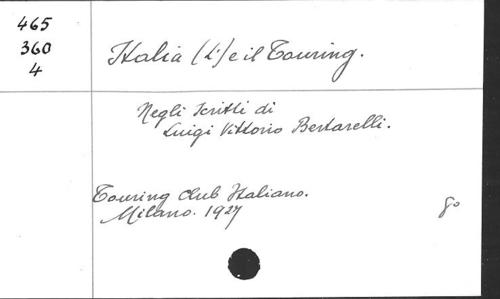 465
360
4
Italia (L') e il Touring.
Negli scritti di
Luigi Vittorio Bertarelli.
Touring Club Italiano.
Milano. 1927
8º